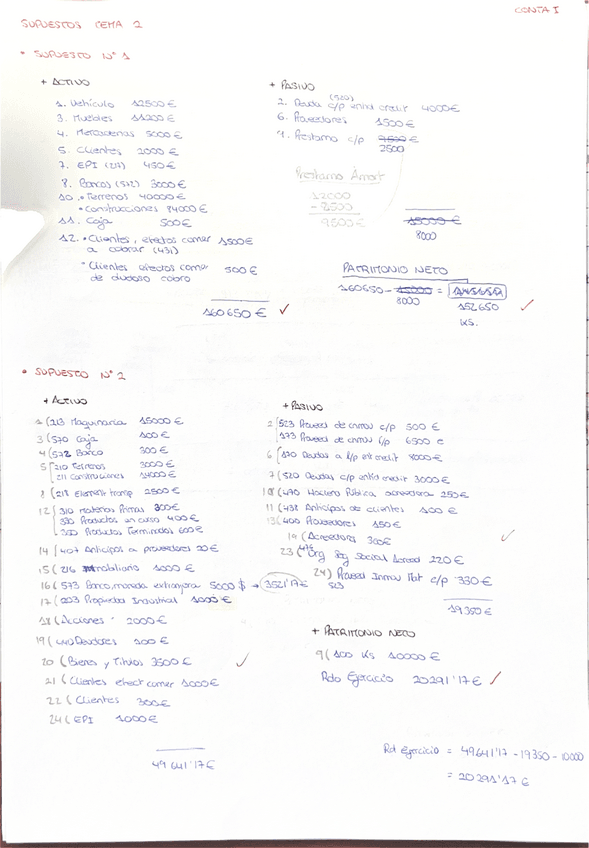 CONTA I
SUPUESTOS TEMA 2
• SUPUESTO Nº 1
+ ACTIVO
1. Vehículo 12500 €
3. Muebles 11200 €
4. Mercaderías 5000 €
5. Clientes 2000 €
7. EPI (217) 450 €
8. Bancos (572) 3000 €
10. • Terrenos 40000 €
• Construcciones 84000 €
11. Caja 500 €
12. • Clientes, efectos comer 1500 €
a cobrar (431)
• Clientes efectos comer 500 €
de dudoso cobro
160650 € ✓
+ PASIVO
(520)
2. Deuda c/p entid credit 4000 €
6. Proveedores 1500 €
9. Préstamo c/p 9500 €
2500
Prestamo Amort
12000
- 2500
9500 €
15000 €
8000
PATRIMONIO NETO
160650 - 15000 = 145650
8000 152650 ✓
KS.
• SUPUESTO Nº 2
+ ACTIVO
1 (213 Maquinaria 15000 €
3 (570 Caja 100 €
4 (572 Banco 300 €
5 210 Terrenos 3000 €
211 Construcciones 14000 €
8 (218 Element transp 2500 €
12 310 Materias Primas 300 €
330 Productos en curso 400 €
350 Productos Terminados 600 €
14 (407 Anticipos a proveedores 20 €
15 (216 Mobiliario 1000 €
16 (573 Banco, moneda extranjera 5000 $ → 3521'17 €
17 (203 Propiedad Industrial 1000 €
18 (Acciones 2000 €
19 (440 Deudores 100 €
20 (Bienes y Títulos 3500 € ✓
21 (Clientes efect comer 1000 €
22 (Clientes 300 €
24 (EPI 1000 €
49641'17 €
+ PASIVO
2 523 Proveed de inmov c/p 500 €
173 Proveed de inmov l/p 6500 €
6 170 Deudas a l/p ent credit 8000 €
7 (520 Deudas c/p entid credit 3000 €
10 (470 Hacienda Pública acreedora 250 €
11 (438 Anticipos de clientes 100 €
13 (400 Proveedores 150 €
19 (Acreedores 300 € ✓
23 (476 Org Seg Social Acreed 220 €
24) Proveed Inmov Mat c/p 330 €
523
19350 €
+ PATRIMONIO NETO
9 (100 KS 10000 €
Rdo Ejercicio 20291'17 € ✓
Rdo Ejercicio = 49641'17 - 19350 - 10000
= 20291'17 €